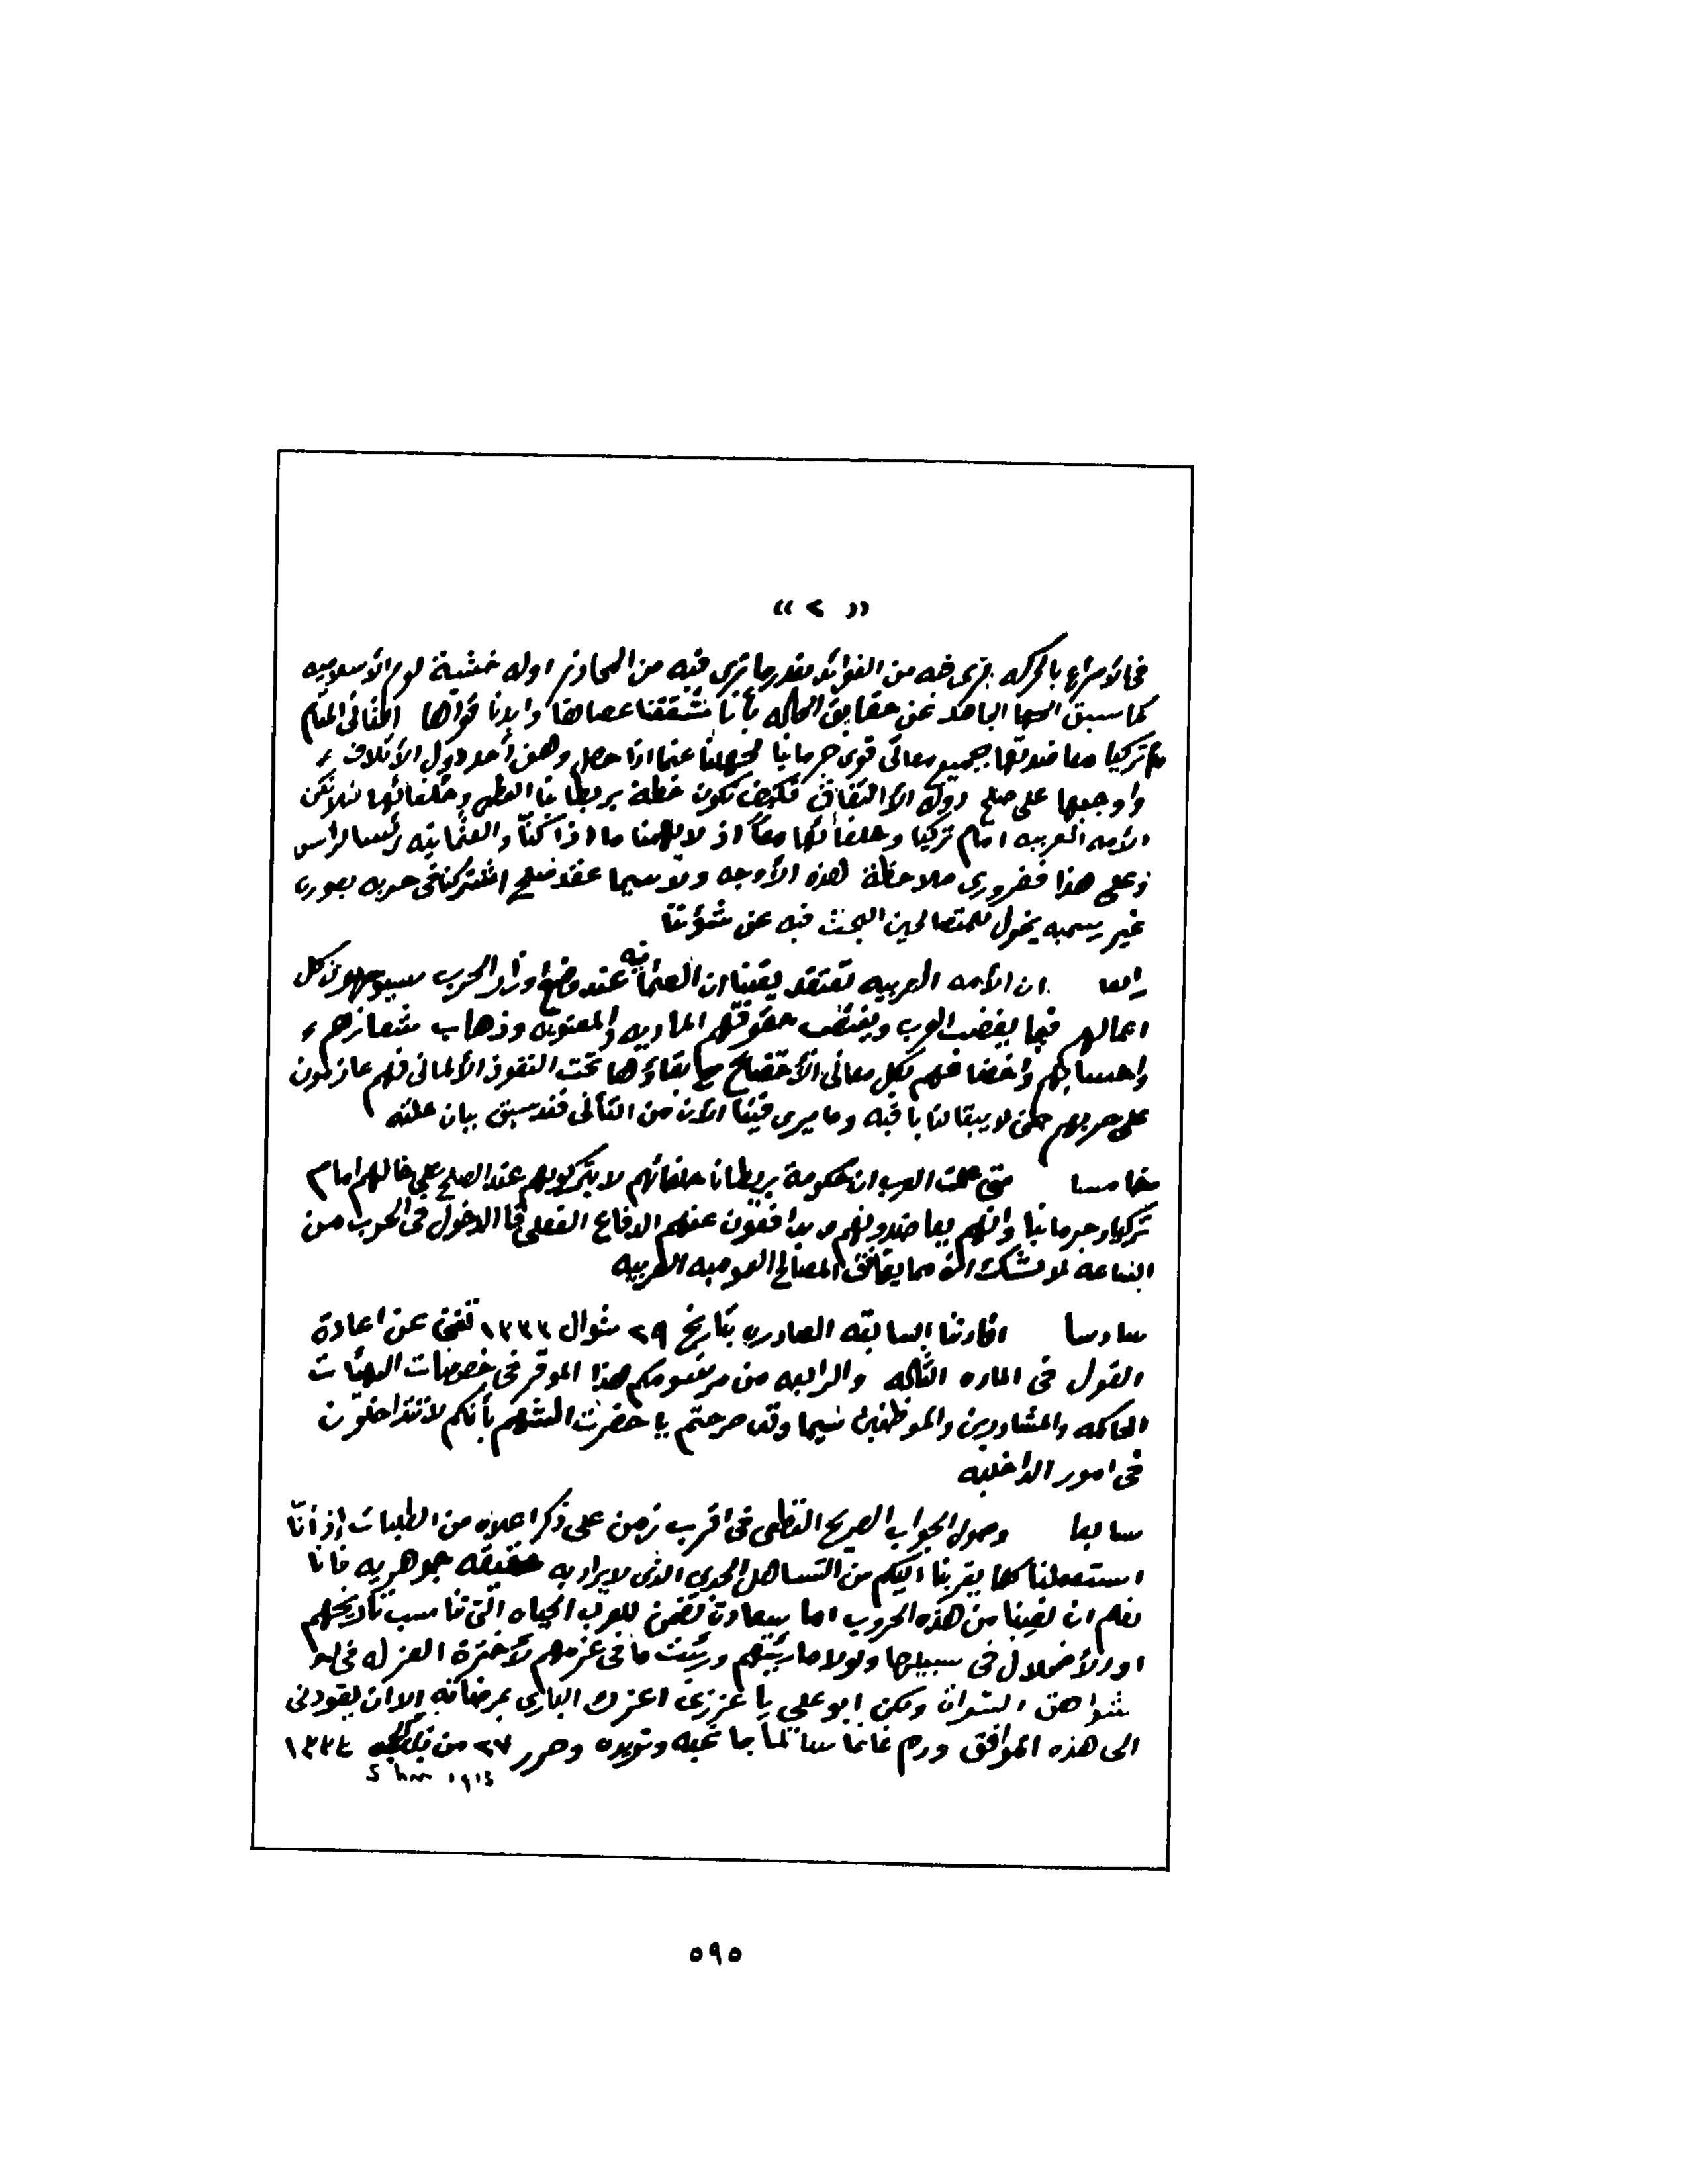 « ٢ »
فى الأسراع بالحركه نرى فيه من الفوائد بقدر ما نرى فيه من المحاذير اوله خشية لوم الأسلاميه
كما سبق الجاهله عن حقايق الحاله بأنا شققنا عصاها وابدنا قواها الثانى المقام
مع تركيا معاضدتها بجميع معانى قوى جرمانيا لجهلنا عما اذا حصل وهن أحد دول الأتلاف
واوجبها على صلح دول الأتفاق فكيف تكون خطة بريطانيا العظمى وحلفائها لئلا تكن
الأمه العربيه امام تركيا وحلفائها معاً اذ لا يهمنا ما اذا كنّا والعثمانيه رئسا لراس
وعلى هذا فضرورى ملاحظة هذه الأوجه ولا سيما عقد صلح اشتركنا فى حربه بصوره
غير رسميه يخول للمتصالحين البحث فيه عن شؤننا
رابعا ان الأمه العربيه تعتقد يقينا ان العثمانيه عند وضع اوزار الحرب سيوجهون كل
اعمالهم فيما يغضب العرب ويغتصب حقوقهم الماديه والمعنويه وذهاب شعائرهم
واحسابهم واخضاعهم بكل معانى الأخضاع مع بقاؤها تحت النفوذ الألمانى فهم عازمون
على حربهم حتى لا يبقا لنا باقيه وما يرى فينا الآن من التأنى فقد سبق بيان علته
خامسا متى علمت العرب ان حكومة بريطانا حلفائهم لا يتركوهم عند الصلح على حالهم امام
تركيا وجرمانيا وانهم يعاضدونهم ويدافعون عنهم الدفاع الفعلى فا الدخول فى الحرب من
الساعه لا نشك انه مما يوافق المصالح العموميه العربيه
سادسا افادتنا السابقه الصادره بتاريخ ٢٩ شوال ١٣٣٣ تغنى عن اعادة
القول فى الماده الثالثه والرابعه من مرسومكم هذا الموقر فى خصوصات الهيئات
الحاكمه والمشاورين والموظفين سيما وقد صرحتم يا حضرت الشهم بأنكم لا تتداخلون
فى امور الداخليه
سابعا وصول الجواب الصريح القطعى فى اقرب زمن على ذكر اعلاه من الطلبات إذ أنّا
استعملنا كلما يقربنا اليكم من التساهل الجدى الذى لا يراد به حقيقه جوهريه فانا
نعلم ان نصيبنا من هذه الحروب اما سعادة تضمن للعرب الحياه التى تناسب تاريخهم
او الأضمحلال فى سبيلها ولولا ما رئيتهم ورئيت ما فى عزمهم لأخترة العزله فى
شواهق السراة ولكن ابو على يا عزيزى اعزك البارى بمرضاته الا ان يقودنى
الى هذه المواقف ودم غانما سالما بما تحبه وتوده وحرر ٢٧ من ذى الحجه ١٣٣٤
١٩١٥
٥٩٥